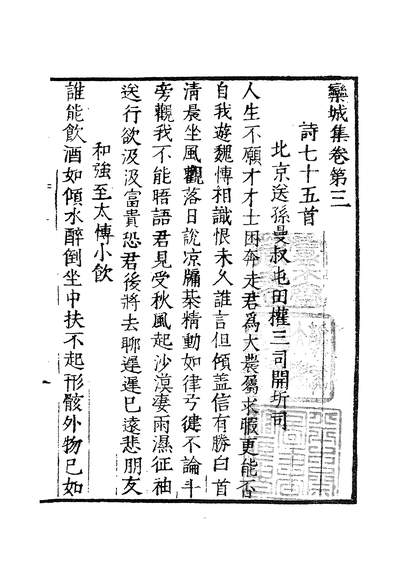 欒城集卷第三
詩七十五首
北京送孫曼叔屯田權三司開坼司
人生不願才才士困奔走君為大農屬求暇更能否
自我遊魏博相識恨未久誰言但傾盖信有勝白首
清晨坐風觀落日說凉牖棊精動如律弓健不論斗
旁觀我不能晤語君見受秋風起沙漠凄雨濕征袖
送行欲汲汲富貴恐君後將去聊遲遲已遠悲朋友
和強至太博小飲
誰能飲酒如傾水醉倒坐中扶不起形骸外物已如